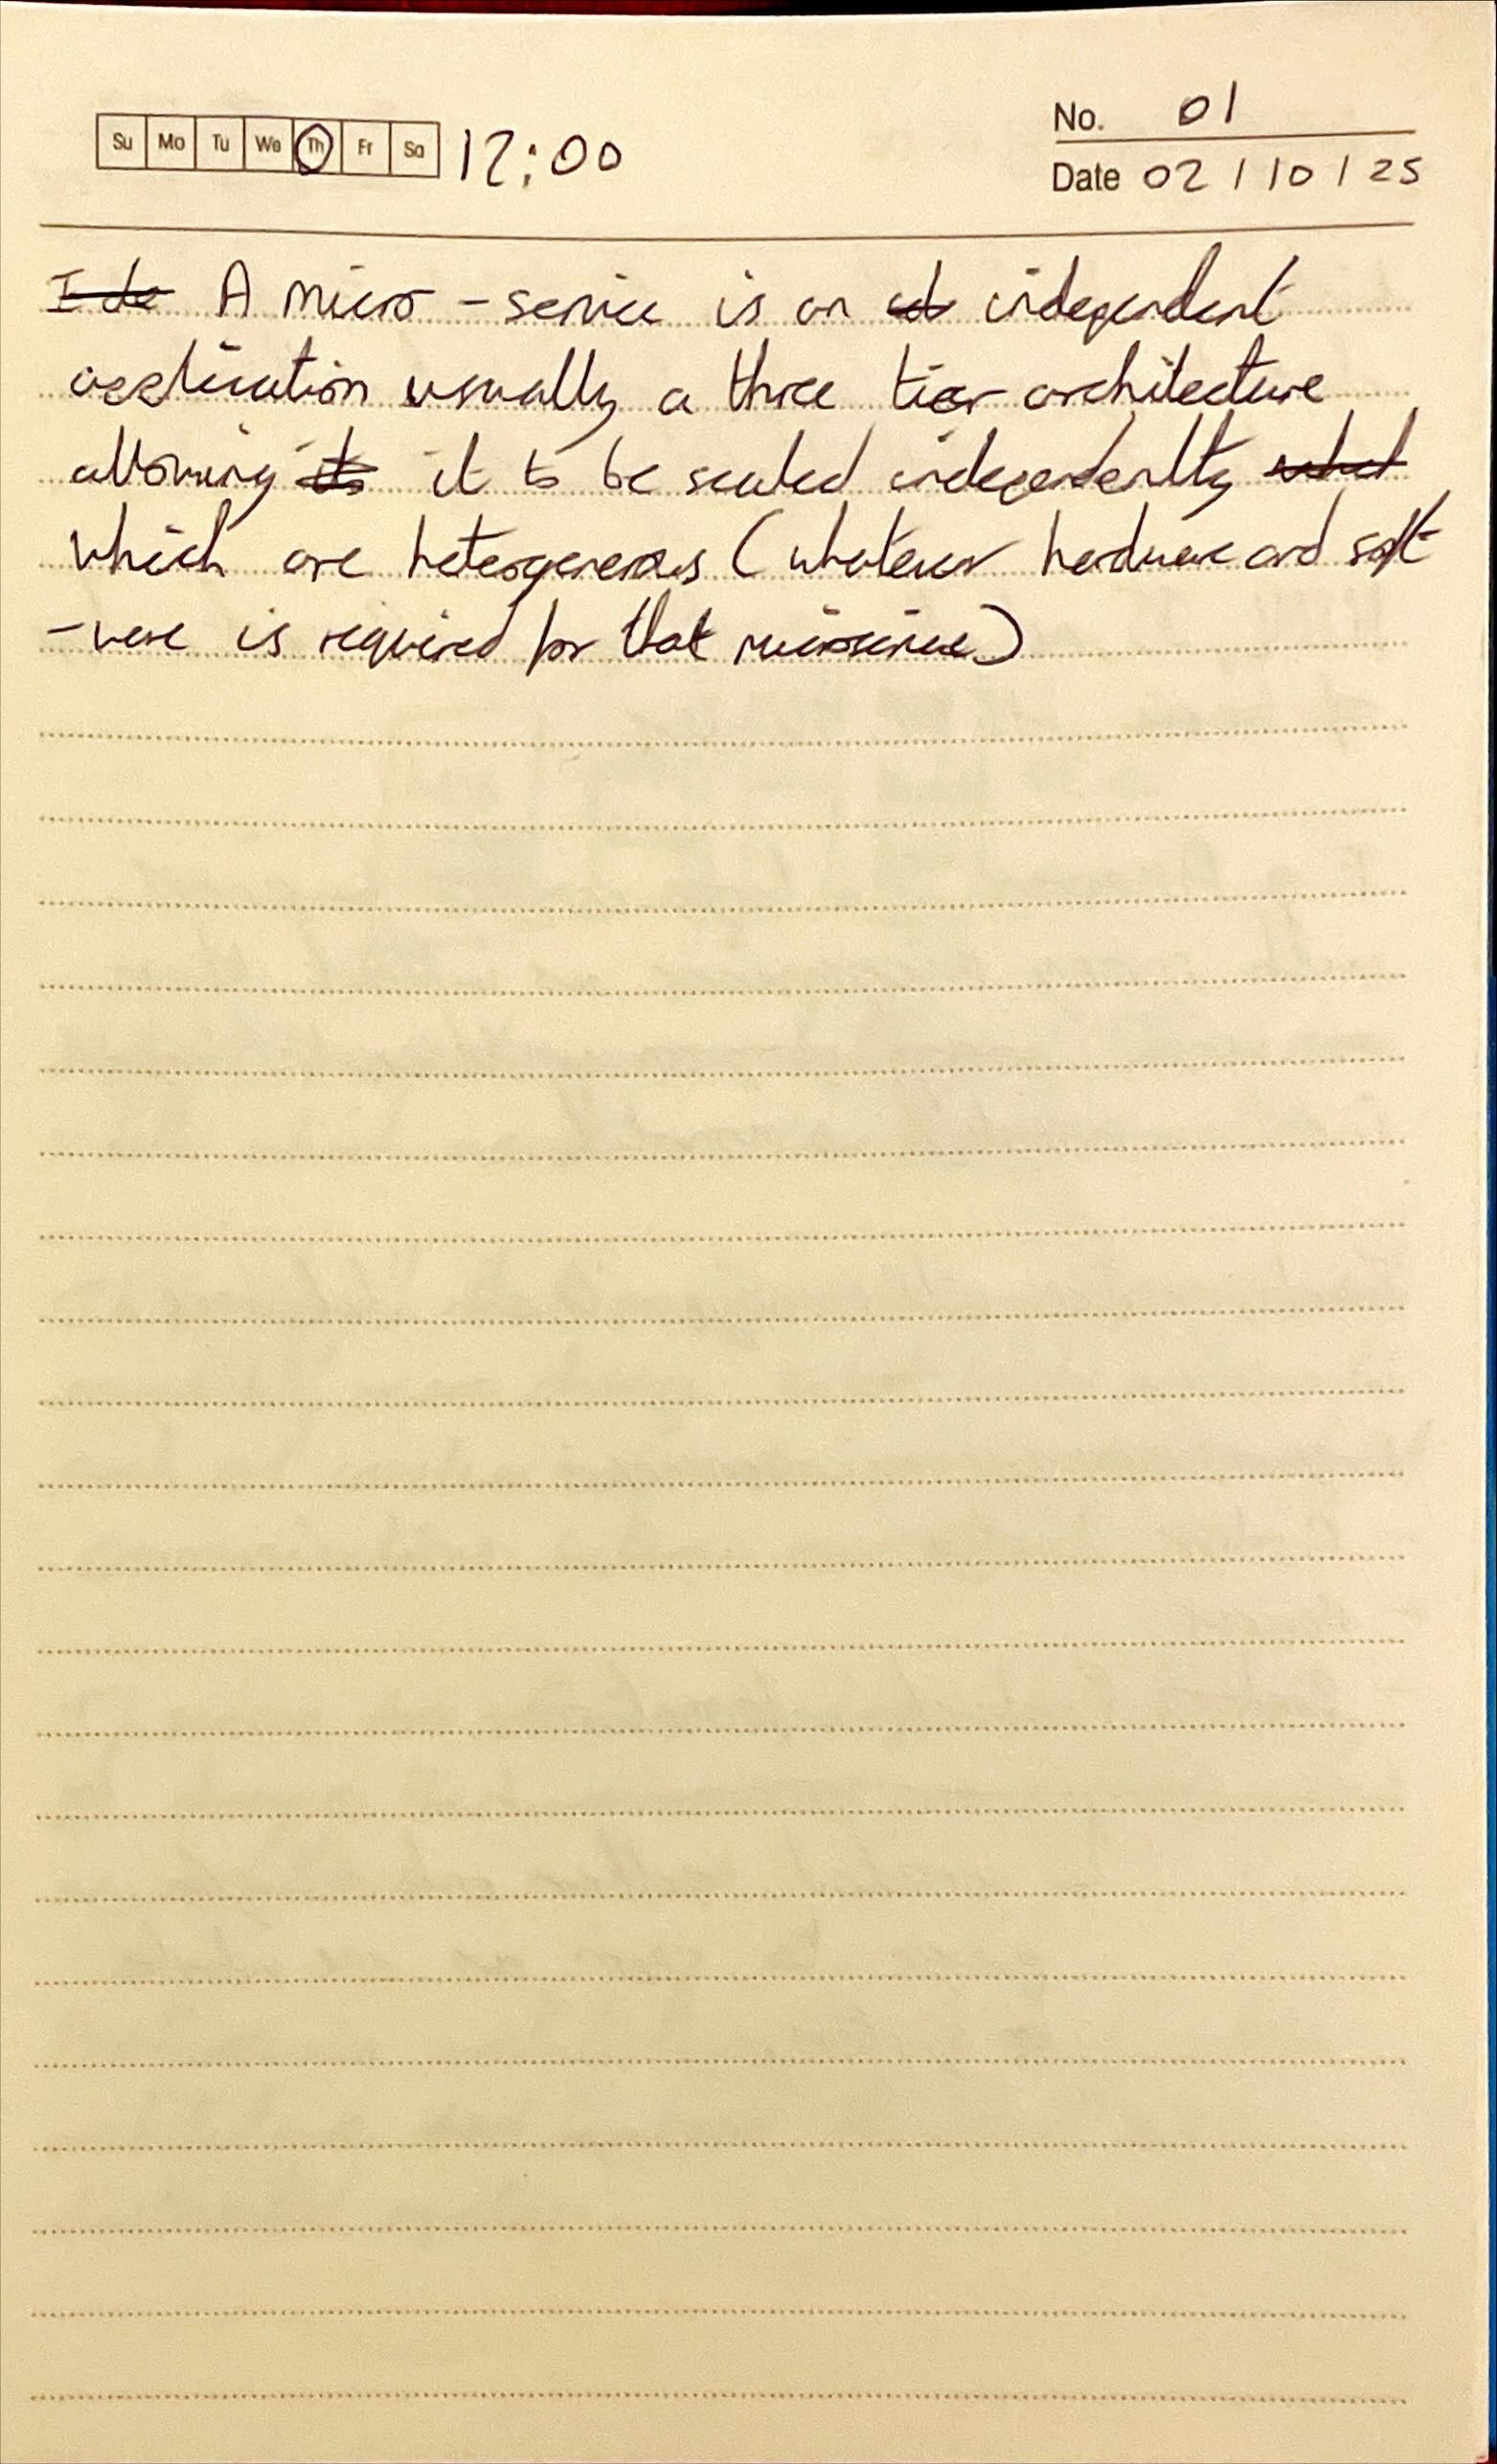 Su Mo Tu We Th Fr Sa 12:00
No. 01
Date 02 / 10 / 25
A micro - service is an independent
application usually a three tier architecture
allowing it to be scaled independently
which are heterogeneous (whatever hardware and soft
-ware is required for that microservice)